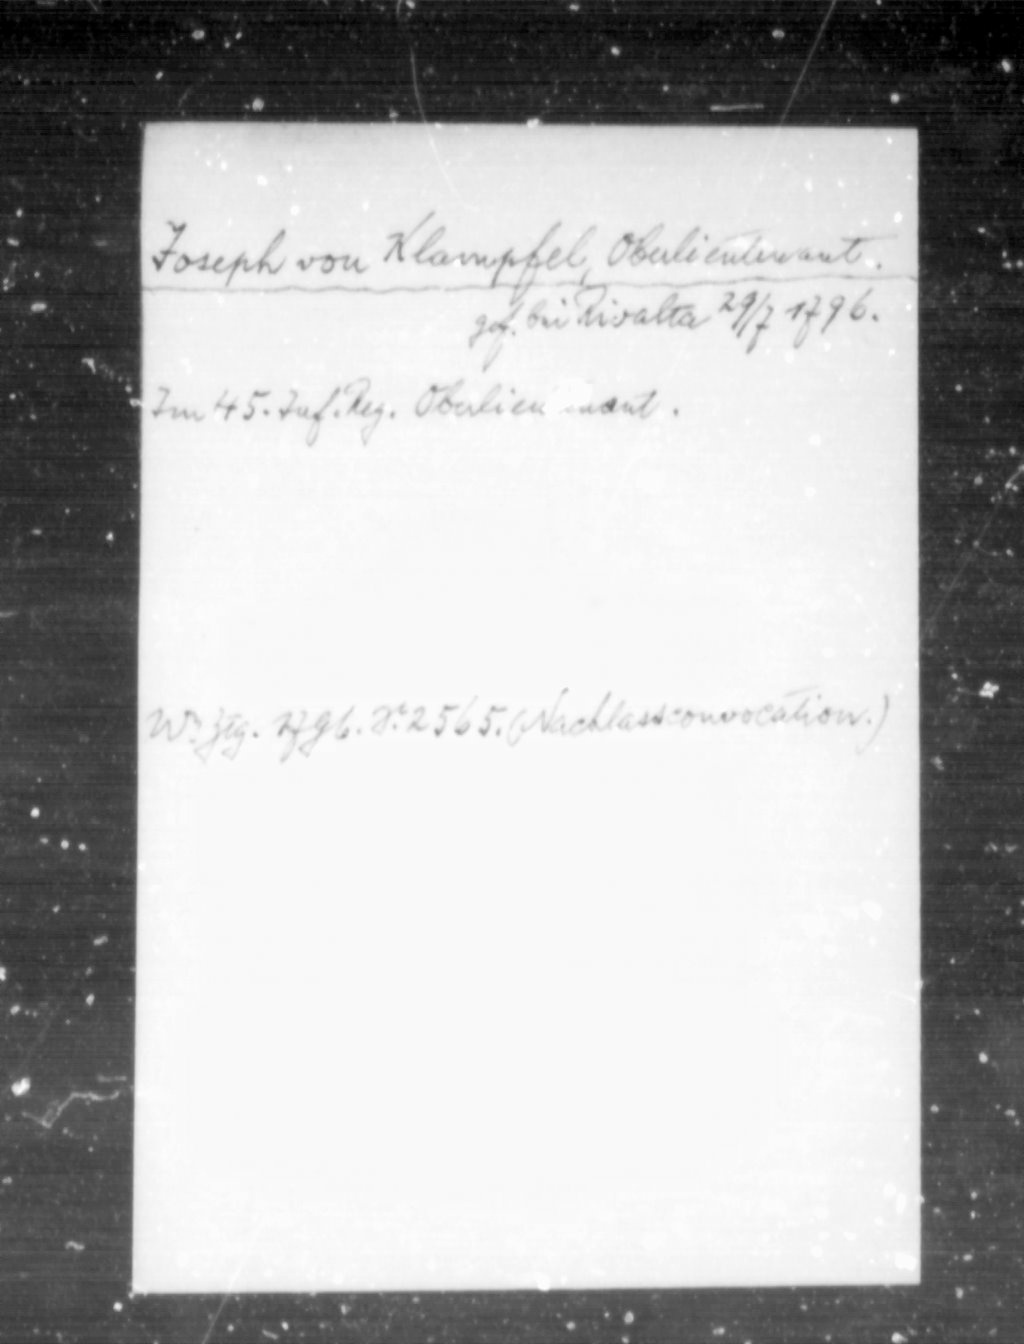 Joseph von Klampfel, Oberlieutenant.
gef. bei Rivalta 29/7 1796.
Im 45. Inf. Reg. Oberlieutenant.
Wr. Ztg. 1796. Nr. 2565. (Nachlassconvocation.)